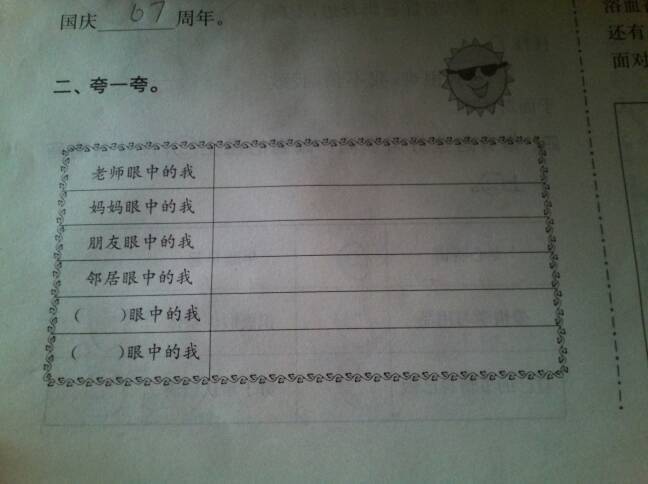 国庆67周年。
二、夸一夸。
老师眼中的我
妈妈眼中的我
朋友眼中的我
邻居眼中的我
(　　)眼中的我
(　　)眼中的我
还有
面对